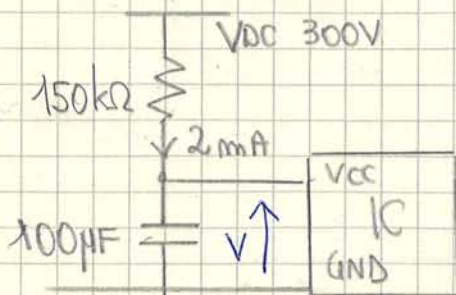 VDC 300V
150kΩ
2mA
VCC
IC
100µF
V
GND